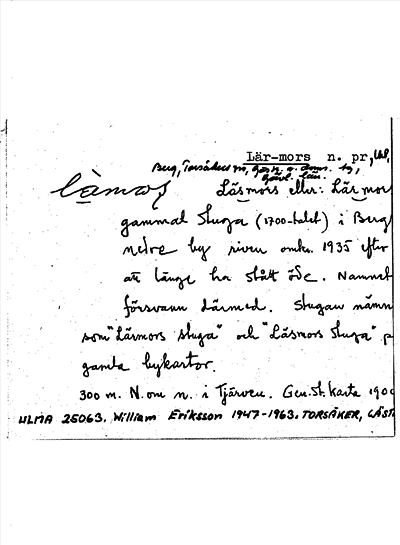 Lär-mors n. pr,
Berg, Torsåkers sn, Gästr. o. by,
Gävl. län.
làmos Läsmors eller: Lärmor
gammal stuga (1700-talet) i Berg
nedre by riven omkr. 1935 efter
att länge ha stått öde. Namnet
försvann därmed. Stugan nämn
som "Lärmors stuga" och "Läsmors stuga" p
gamla bykartor.
300 m. N. om n. i Tjärven. Gen.St. Karta 190
ULMA 25063. William Eriksson 1947-1963. TORSÅKER, GÄST